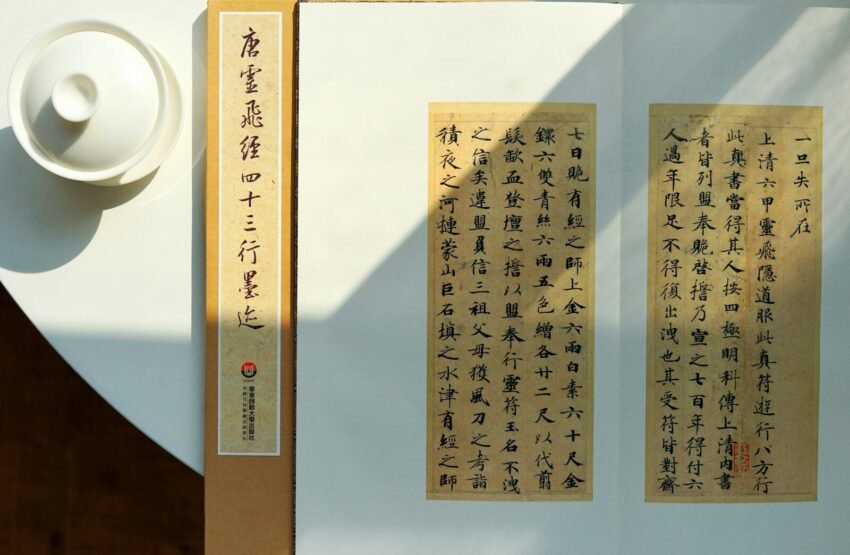 唐靈飛經四十三行墨迹
華東師範大學出版社
一旦失所在
上清六甲靈飛隱道服此真符遊行八方行
此真書當得其人按四極明科傳上清內書
者皆列盟奉貺啓擔乃宣之七百年得付六
人過年限足不得復出洩也其受符皆對齊
七日貺有經之師上金六兩白素六十尺金
鐶六雙青絲六兩五色繒各廿二尺以代翦
髮歃血登壇之擔以盟奉行靈符玉名不洩
之信矣違盟負信三祖父母獲風刀之考詣
積夜之河摙蒙山巨石填之水津有經之師